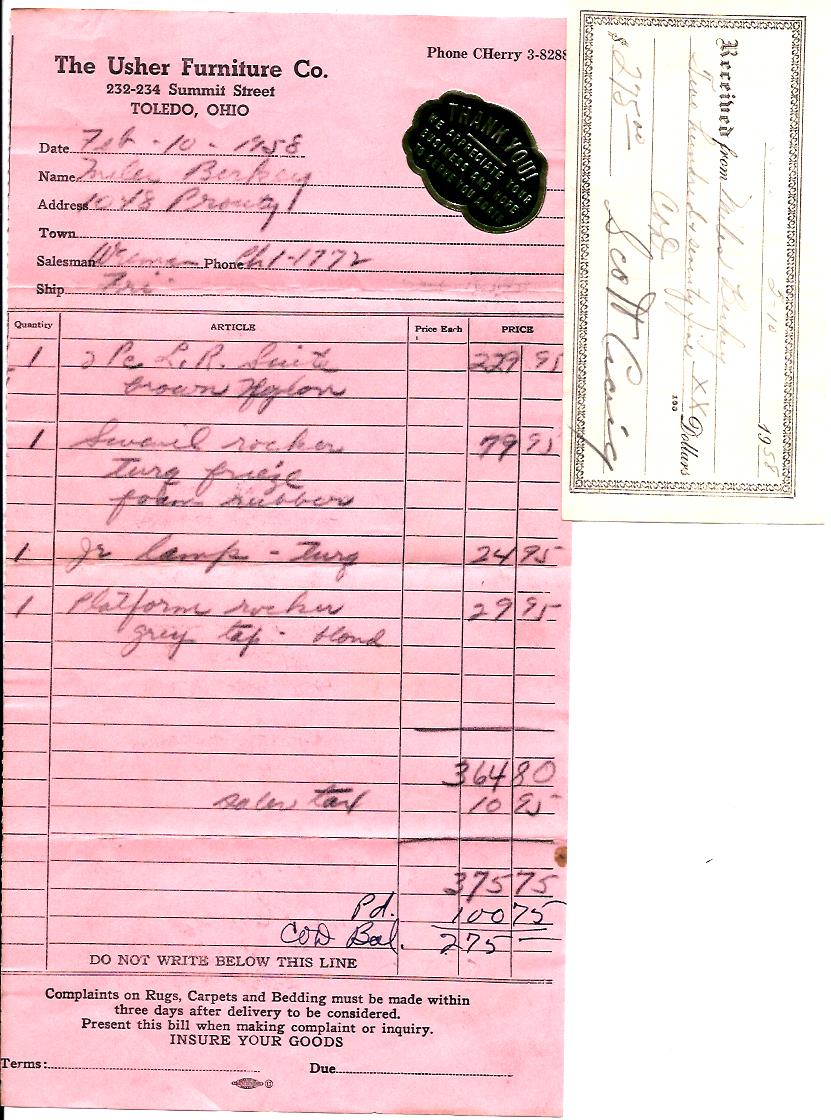 Phone CHerry 3-8288
The Usher Furniture Co.
232-234 Summit Street
TOLEDO, OHIO
THANK YOU!
WE APPRECIATE YOUR
BUSINESS AND HOPE
TO SERVE YOU AGAIN
Date Feb - 10 - 1958
Name Miles Berkey
Address 1048 Prouty
Town
Salesman Phone Ch 1-1772
Ship Fri
Quantity ARTICLE Price Each PRICE
1 2 Pc L.R. Suite 229 95
brown Nylon
1 Swevil rocker 79 95
turq frieze
foam rubber
1 Jr lamp - turq 24 95
1 Platform rocker 29 95
grey tap - blond
364 80
sales tax 10 95
375 75
Pd. 100 75
COD Bal. 275 —
DO NOT WRITE BELOW THIS LINE
Complaints on Rugs, Carpets and Bedding must be made within
three days after delivery to be considered.
Present this bill when making complaint or inquiry.
INSURE YOUR GOODS
Terms: Due
2-10 1958
Received from Miles Berkey
Two hundred & seventy five XX/100 Dollars
COD
$ 275.00 Scott Craig